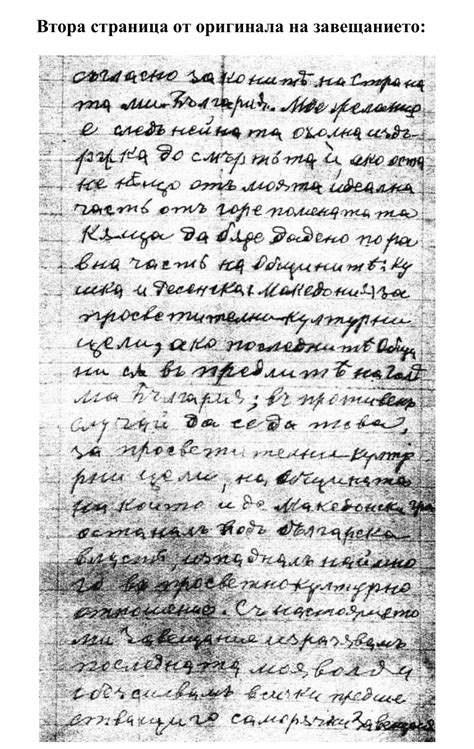 Втора страница от оригинала на завещанието:
съгласно законитѣ на Страна
та ми България. Мое желание
е следъ нейната охолна издъ
ржка до смъртьта ѝ ако оста
не нѣщо отъ моята идеална
часть отъ горепоменатата
Къща да бъде дадено по ра
вна часть на Общинитѣ: Ку
шка и Десенска Македония за
просветителни културни
цели, ако последнитѣ Общи
ни сѫ въ пределитѣ на Голѣ
ма България; въ противенъ
случай да се датъ за
за просветителни култу
рни цели, на Общината
на която и де Македонски гра
останалъ подъ българска
власть, изпадналъ наймно
го въ просветнокултурно
отношение. Съ настоящето
ми Завещание изразявамъ
последната моя воля и
обезсилвамъ всички предше
ствващи го саморъчни Завещания